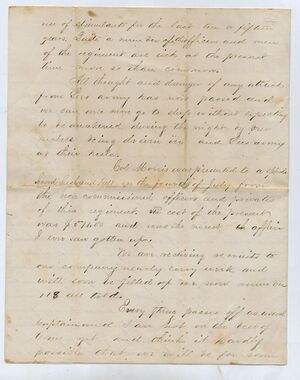 use of stimulants for the last ten or fifteen
years. Quite a number of the officers and men
of the regiment are sick at the present
time more so than common.
All thought and danger of any attack
from Lees army has now passed and
we can once more go to sleep without expecting
to be awakened during the night by our
pickets being driven in and Lees army
at their heels.
Col. Morris was presented to a
and on the fourth of July from
the non commissioned officers and privates
of this regiment. The cost of the present
was and was the nicest affair
I ever saw gotten up.
We are receiving recruits to
our company nearly every week and
will soon be filled up for now number
118 all told.
Every thing passes off as usual
Captain and I are not on the best of
terms yet and think it hardly
possible that we will be for some